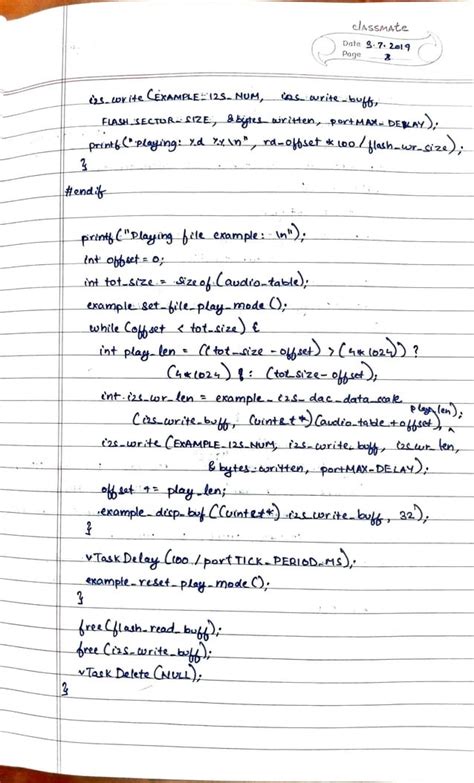 classmate
Date 9.7.2019
Page 8
i2s_write (EXAMPLE_I2S_NUM, i2s_write_buff,
FLASH_SECTOR_SIZE, &bytes_written, portMAX_DELAY);
printf("playing: %d %%\n", rd_offset * 100 / flash_wr_size);
}
#endif
printf("Playing file example: \n");
int offset = 0;
int tot_size = sizeof(audio_table);
example_set_file_play_mode();
while (offset < tot_size) {
int play_len = ((tot_size - offset) > (4*1024)) ?
(4*1024) : (tot_size - offset);
int i2s_wr_len = example_i2s_dac_data_scale
play_len);
(i2s_write_buff, (uint8_t*)(audio_table + offset), ^
i2s_write (EXAMPLE_I2S_NUM, i2s_write_buff, i2s_wr_len,
&bytes_written, portMAX_DELAY);
offset += play_len;
example_disp_buf((uint8_t*) i2s_write_buff, 32);
}
vTaskDelay (100 / portTICK_PERIOD_MS);
example_reset_play_mode();
}
free(flash_read_buff);
free(i2s_write_buff);
vTaskDelete(NULL);
}